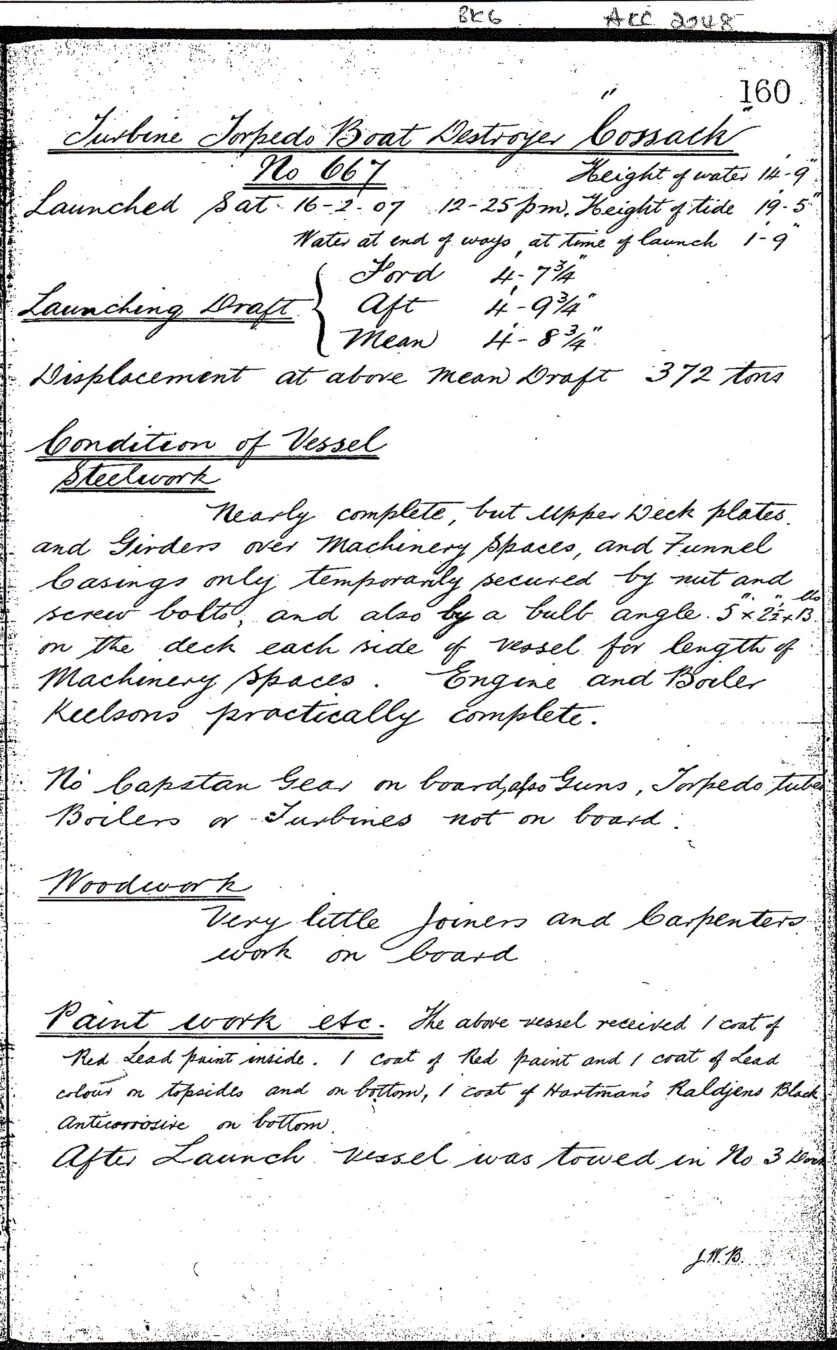 BK6 ACC 2048
160
Turbine Torpedo Boat Destroyer "Cossack"
No 667 Height of water 14'-9"
Launched Sat 16-2-07 12-25 pm. Height of tide 19'-5"
Water at end of ways, at time of launch 1'-9"
Ford 4'-7¾"
Launching Draft { Aft 4'-9¾"
Mean 4'-8¾"
Displacement at above Mean Draft 372 tons
Condition of Vessel
Steelwork
Nearly complete, but Upper Deck plates
and Girders over Machinery Spaces, and Funnel
Casings only temporarily secured by nut and
screw bolts, and also by a bulb angle 5" x 2½" x 13 lbs
on the deck each side of vessel for length of
Machinery Spaces. Engine and Boiler
Keelsons practically complete.
No Capstan Gear on board, also Guns, Torpedo tubes
Boilers or Turbines not on board.
Woodwork
Very little Joiners and Carpenters
work on board
Paint work etc. The above vessel received 1 coat of
Red Lead paint inside. 1 coat of Red paint and 1 coat of Lead
colour on topsides and on bottom, 1 coat of Hartman's Raldjens Black
Anticorrosive on bottom.
After Launch vessel was towed in No 3 Dock
J.W.B.